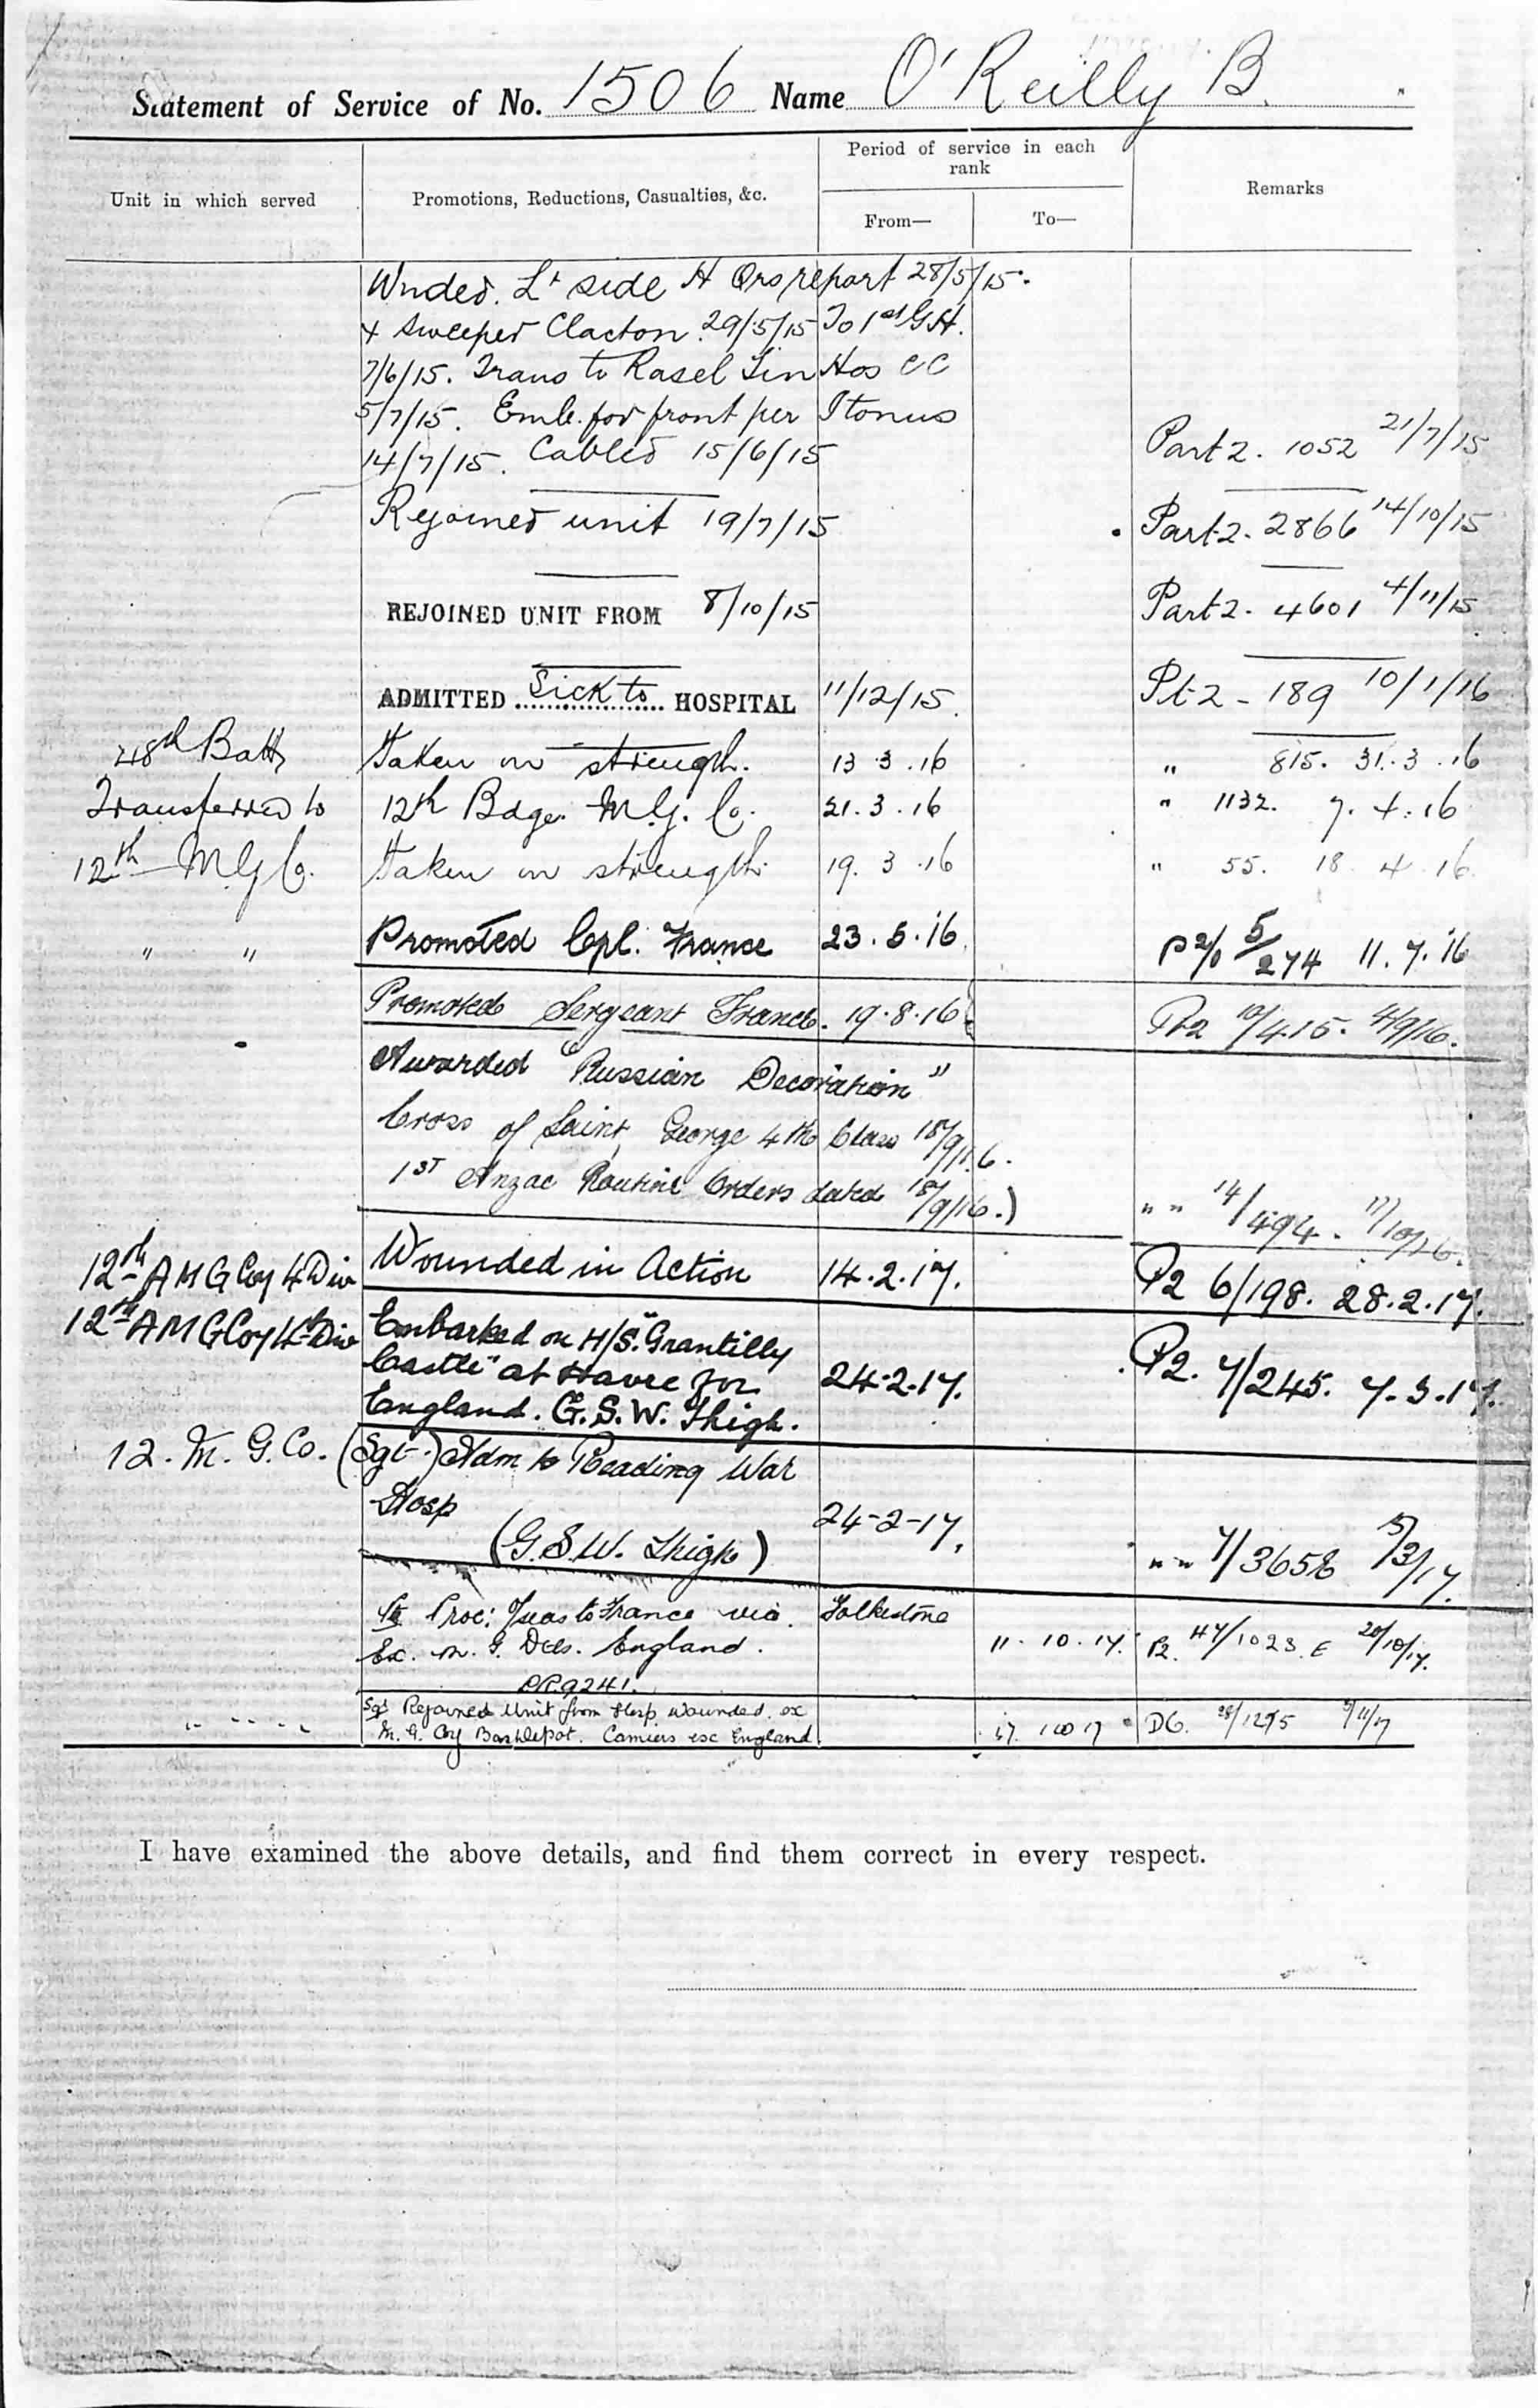 Statement of Service of No. 1506 Name O'Reilly B.
Unit in which served
Promotions, Reductions, Casualties, &c.
Period of service in each rank
From—
To—
Remarks
Wnded. Lt side H Qrs report 28/5/15.
+ Sweeper Clacton. 29/5/15 To 1st G.H.
7/6/15. Trans to Rasel Tin Hos CC
5/7/15. Emb. for front per Itonus
14/7/15. Cabled 15/6/15 Part 2. 1052 21/7/15
Rejoined unit 19/7/15 Part 2. 2866 14/10/15
REJOINED UNIT FROM 8/10/15 Part 2. 4601 4/11/15
ADMITTED Sick to HOSPITAL 11/12/15. Pt 2 - 189 10/1/16
48th Batt Taken on strength. 13.3.16 " 815. 31.3.16
Transferred to 12th Bdge. M.G. Co. 21.3.16 " 1132. 7.4.16
12th M G Co. Taken on strength. 19.3.16 " 55. 18.4.16
" " Promoted Cpl. France 23.5.16 P 2/0 5/274 11.7.16
Promoted Sergeant France. 19.8.16 Pt 2 10/415. 4/9/16.
Awarded "Russian Decoration"
Cross of Saint George 4th Class 18/9/16.
1ST Anzac Routine Orders dated 18/9/16.) " " 14/494. 17/10/16.
12th A M G Coy 4 Div Wounded in Action 14.2.17. P2 6/198. 28.2.17.
12th A M G Coy 4th Div Embarked on H/S. "Grantilly
Castle" at Havre for 24.2.17. P2. 7/245. 7.3.17.
England. G.S.W. Thigh.
12. M. G. Co. (Sgt.) Adm to Reading War
Hosp 24-2-17.
(G.S.W. Thigh) " " 7/3658 5/3/17.
Proc: O'seas to France via Folkestone
Ex. M. G. Dets. England. 11.10.17. P2. 47/1023 E 20/10/17.
DR9241.
" " " " Sgt Rejoined Unit from Hosp. Wounded. ex
M. G. Coy Base Depot. Camiers exc England 17.10.17 DG. 28/1275 9/11/17
I have examined the above details, and find them correct in every respect.